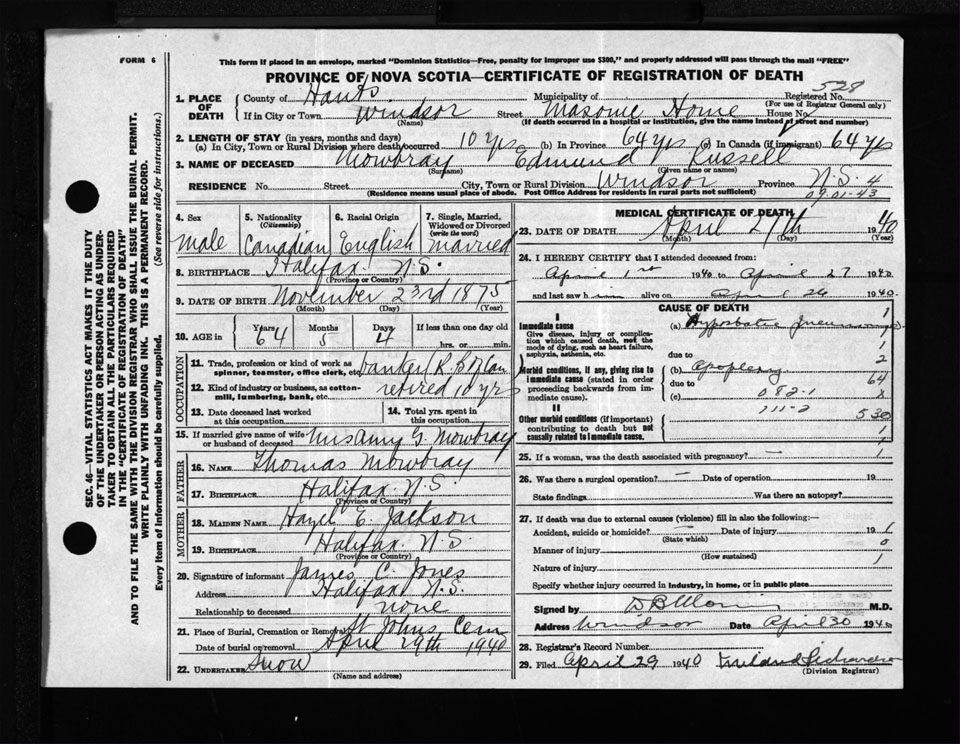 FORM 6
This form if placed in an envelope, marked "Dominion Statistics—Free, penalty for improper use $300," and properly addressed will pass through the mail "FREE"
PROVINCE OF NOVA SCOTIA—CERTIFICATE OF REGISTRATION OF DEATH
529
1. PLACE OF DEATH
County of Hants Municipality of Registered No.
(For use of Registrar General only)
If in City or Town Windsor Street Masonic Home House No.
(Name) (If death occurred in a hospital or institution, give the name instead of street and number)
2. LENGTH OF STAY (in years, months and days)
(a) In City, Town or Rural Division where death occurred 10 yrs (b) In Province 64 yrs (c) In Canada (if immigrant) 64 yrs
3. NAME OF DECEASED Mowbray Edmund Russell
(Surname) (Given name or names)
RESIDENCE No. Street City, Town or Rural Division Windsor Province N.S. 4
(Residence means usual place of abode. Post Office Address for residents in rural parts not sufficient) 09-01-43
4. Sex
male
5. Nationality
(Citizenship)
Canadian
6. Racial Origin
English
7. Single, Married, Widowed or Divorced
(write the word)
married
8. BIRTHPLACE Halifax N.S.
(Province or Country)
9. DATE OF BIRTH November 23rd 1875
(Month) (Day) (Year)
10. AGE in
Years 64
Months 5
Days 4
If less than one day old
hrs. or min.
OCCUPATION
11. Trade, profession or kind of work as spinner, teamster, office clerk, etc. banker
12. Kind of industry or business, as cotton-mill, lumbering, bank, etc. retired 10 yrs
13. Date deceased last worked at this occupation
14. Total yrs. spent in this occupation
15. If married give name of wife or husband of deceased Mrs Amy G. Mowbray
FATHER
16. NAME Thomas Mowbray
17. BIRTHPLACE Halifax N.S.
(Province or Country)
MOTHER
18. MAIDEN NAME Hazel E. Jackson
19. BIRTHPLACE Halifax N.S.
(Province or Country)
20. Signature of informant James C. Jones
Address Halifax N.S.
Relationship to deceased none
21. Place of Burial, Cremation or Removal St Johns Cem
Date of burial or removal April 29th 1940
22. UNDERTAKER Snow
(Name and address)
MEDICAL CERTIFICATE OF DEATH
23. DATE OF DEATH April 27th 1940
(Month) (Day) (Year)
24. I HEREBY CERTIFY that I attended deceased from:
April 1st 1940 to April 27 1940
and last saw him alive on April 26 1940.
CAUSE OF DEATH
I
Immediate cause
Give disease, injury or complication which caused death, not the mode of dying, such as heart failure, asphyxia, asthenia, etc.
(a) Hypostatic Pneumonia
due to
Morbid conditions, if any, giving rise to immediate cause (stated in order proceeding backwards from immediate cause).
(b) Apoplexy
due to
(c)
082-1
111-2
II
Other morbid conditions (if important) contributing to death but not causally related to immediate cause.
1
1
2
64
8
530
1
1
25. If a woman, was the death associated with pregnancy? —
26. Was there a surgical operation? — Date of operation 19
State findings Was there an autopsy?
27. If death was due to external causes (violence) fill in also the following:—
Accident, suicide or homicide? — Date of injury 19
(State which)
Manner of injury
(How sustained)
Nature of injury
1
0
1
Specify whether injury occurred in industry, in home, or in public place
Signed by M.D.
Address Windsor Date April 30 1940
28. Registrar's Record Number
29. Filed April 29 1940
(Division Registrar)
SEC. 46—VITAL STATISTICS ACT MAKES IT THE DUTY
OF THE UNDERTAKER OR PERSON ACTING AS UNDERTAKER TO OBTAIN ALL THE PARTICULARS REQUIRED
IN THE "CERTIFICATE OF REGISTRATION OF DEATH"
AND TO FILE THE SAME WITH THE DIVISION REGISTRAR WHO SHALL ISSUE THE BURIAL PERMIT.
WRITE PLAINLY WITH UNFADING INK. THIS IS A PERMANENT RECORD.
Every item of information should be carefully supplied. (See reverse side for instructions.)